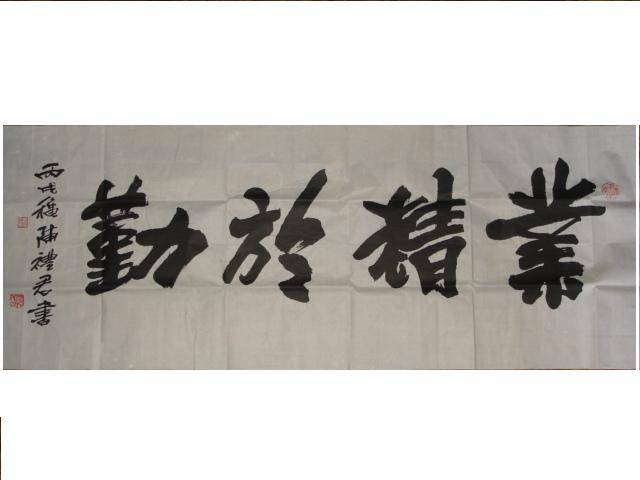 業精於勤
丙戌穐陳禮君書